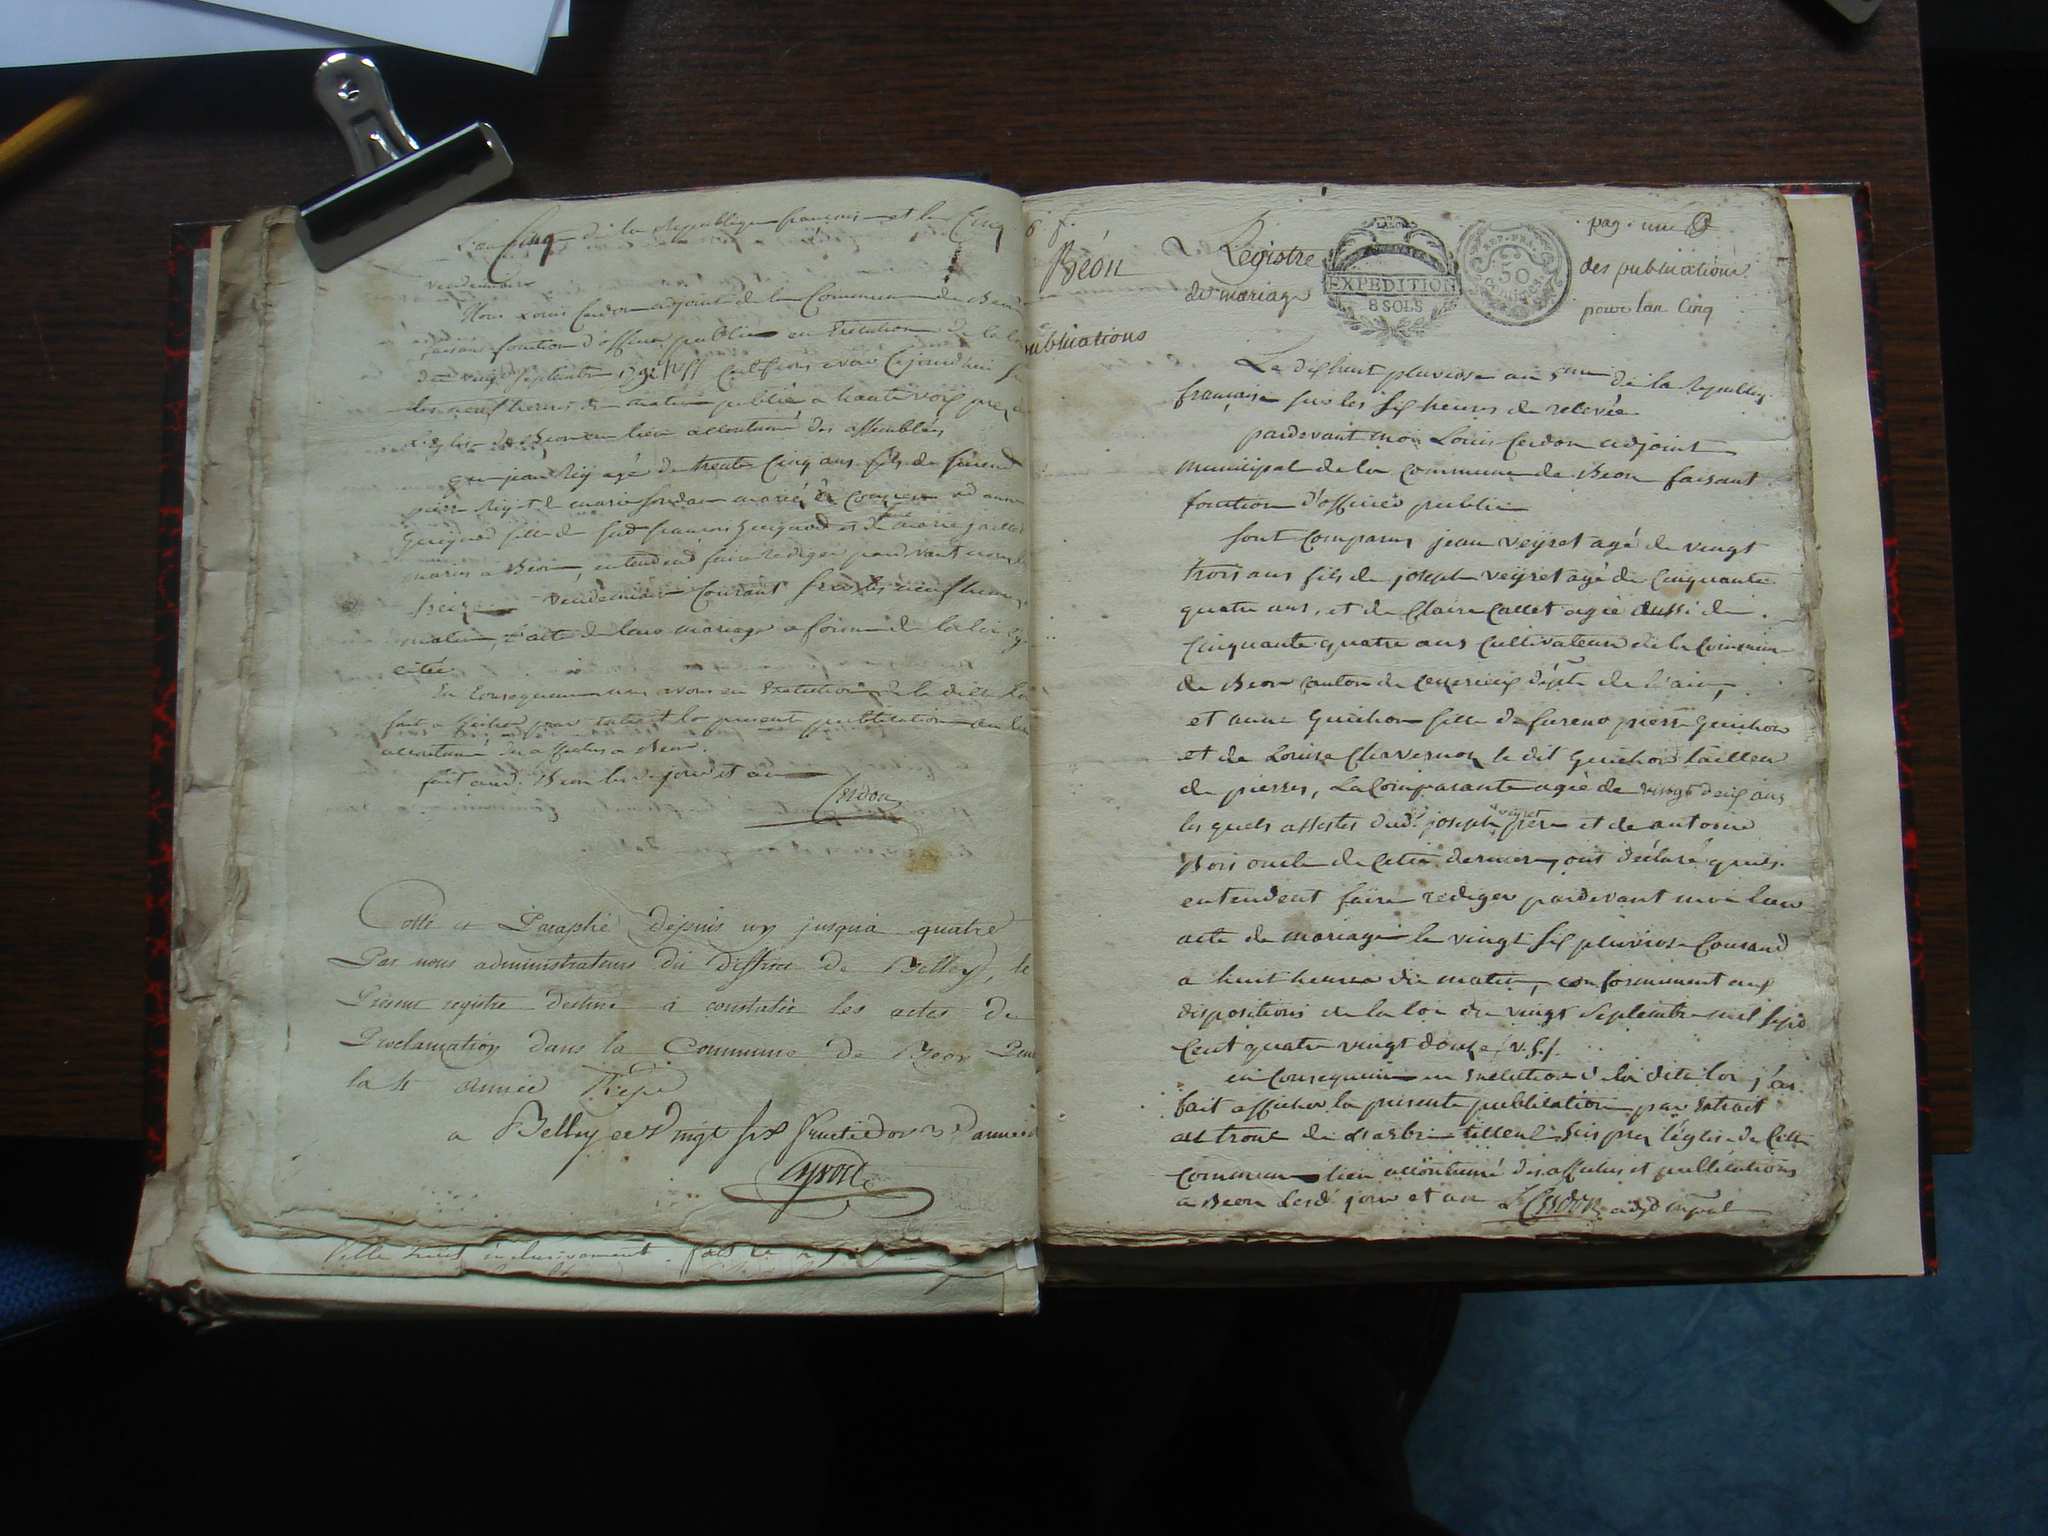 L'an Cinq de la Republique françoise et le Cinq
vendemiaire
Nous Louis Cerdon adjoint de la Commune de Beon
faisan fonction d'officier public en Exécution de la loi
du vingt Septembre
les neuf heures du matin publié a haute voix
l'Eglise de Beon lieu accoutumé des assemblées
que jean Rey agé de trente Cinq ans fils de
pierre Rey et de marie
fille de françois et de marie
maries a Beon, entendend faire rediger pardevant nous
vendemiaire Courant sur les neuf heures
matin, l'acte de leur mariage a forme de la loi
citée
En Consequence nous avons en Exécution de la dite Loi
fait afficher par extrait la presente publication au lieu
accoutumé des affiches a Beon.
fait aud. Beon lesd. jour et an
Cerdon
Cotté et Paraphé depuis un jusqu'à quatre
Par nous administrateurs du District de Belley, le
Présent registre destiné à constater les actes de
Proclamation dans la Commune de Beon Pour
la 4e année Rép.
a Belley ce vingt six fructidor 3e année
Beón
publications
Registre
de mariage
EXPEDITION
8 SOLS
REP. FRA.
50
pag. une
des publications
pour lan Cinq
Le dix huit pluviose an 5me de la Republiq.
française sur les six heures de relevée
pardevant moi Louis Cerdon adjoint
municipal de la Commune de Beon faisant
fonction d'officier public
Sont Comparus jean veyret agé de vingt
trois ans fils de joseph veyret agé de Cinquante
quatre ans, et de Claire Callet agée aussi de
Cinquante quatre ans Cultivateurs de la Commune
de Beon Canton de Ceyzerieux dépte de l'ain,
et anne Guichon fille de fureno pierre Guichon
et de Louise Chavernoz le dit Guichon tailleur
de pierres, La Comparante agée de vingt deux ans
les quels assistés dudt joseph veyret pere et de antoine
Bois oncle de Cette derniere, ont déclaré qu'ils
entendent faire rediger pardevant moi leur
acte de mariage le vingt six pluviose Courand
a huit heures du matin, conformement aux
dispositions de la loi du vingt Septembre mil sept
Cent quatre vingt douze (v. s.).
en Consequence en Exécution de la dite loi j'ai
fait afficher la presente publication par Extrait
au tronc de L'arbre tilleul sis pres l'église de Cette
Commune lieu accoutumé des affiches et publications
a Beon Lesd. jour et an L. Cerdon adj.